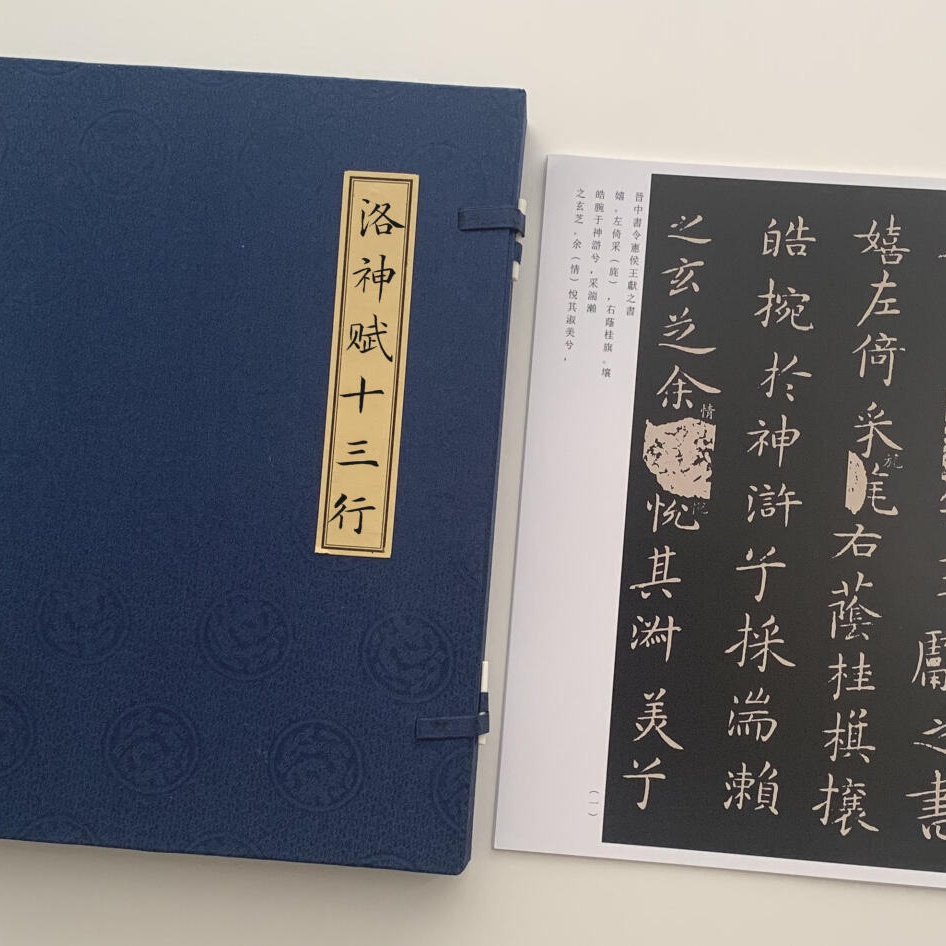 洛神赋十三行
獻之書
嬉左倚采旄右蔭桂旗攘
旄
皓捥於神滸兮採湍瀨
之玄芝余悅其淑美兮
情
晉中書令憲侯王獻之書
嬉。左倚采(旄),右蔭桂旗。壤
皓腕于神滸兮,采湍瀨
之玄芝。余(情)悅其淑美兮,
(一)